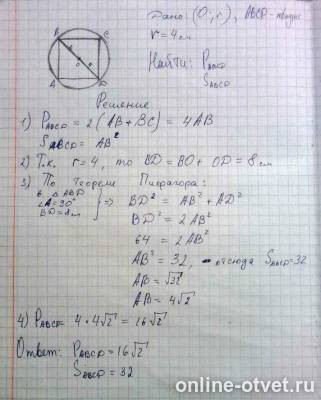 Дано: (O; r), ABCD - квадрат
r = 4 см
Найти: P_ABCD
S_ABCD
B C
O
A D
Решение
1) P_ABCD = 2(AB + BC) = 4AB
S_ABCD = AB²
2) Т.к. r = 4, то BD = BO + OD = 8 см
3) По теореме Пифагора:
в △ ABD
∠A = 90° => BD² = AB² + AD²
BD = 8 см
BD² = 2AB²
64 = 2AB²
AB² = 32, - отсюда S_ABCD = 32
AB = √32
AB = 4√2
4) P_ABCD = 4 · 4√2 = 16√2
Ответ: P_ABCD = 16√2
S_ABCD = 32
online-otvet.ru